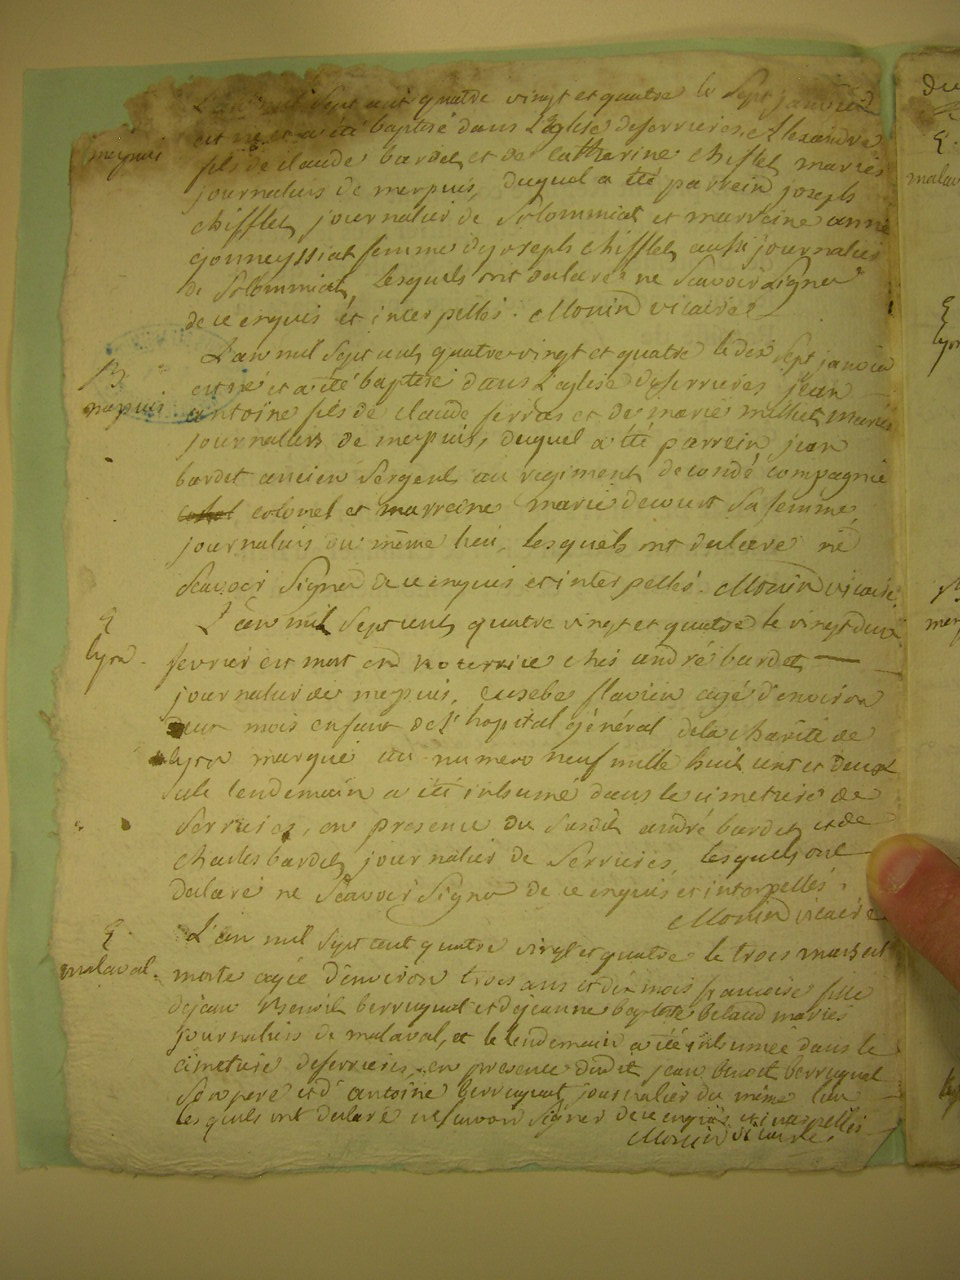 L'an mil sept cent quatre vingt et quatre le sept janvier
est né et a été baptisé dans L'Eglise deserrieres, Alexandre
mepuis
fils de claude bardet et de catherine chifflet mariés
journaliers de merpuis, duquel a été parrein joseph
chifflet, journalier de Solommiat et marreine anne
gouneyssiat femme dyoseph chifflet aussi journalier
de Solommiat, lesquels ont declaré ne Scavoir Signer
de ce enquis et interpellés. Monin vicaire
L'an mil sept cent quatre vingt et quatre le dix sept janvier
B.
est né et a été baptisé dans L'eglise dyserrieres jean
mepuis
antoine fils de claude ferras et de marie millet mariés
journaliers de merpuis, duquel a été parrein jean
bardet ancien Sergent au regiment de condé compagnie
colonel et marreine marie decourt Sa femme
journaliers du même lieu, lesquels ont declaré ne
Scavoir Signer de ce enquis et interpellés. Monin vicaire.
L'an mil Sept cent quatre vingt et quatre le vingt deux
lyon.
fevrier est mort en nourrice chés andré bardet
journalier de mepuis, eusebe flavien agé d'environ
deux mois enfant de L'hopital général de la charité de
lyon marqué au numero neuf mille huit cent et deux
et le lendemain a été inhumé dans le cimetiere de
Serrieres, en presence du Susdit andré bardet et de
charles bardet journalier de Serrieres, lesquels ont
declaré ne Scavoir Signer de ce enquis et interpellés.
Monin vicaire
L'an mil Sept cent quatre vingt et quatre le trois mars est
malaval.
morte agée d'environ trois ans et dix mois francoise fille
dejean Benoit berruquat et dejeanne baptiste belaud mariés
journaliers de malaval, et le lendemain a été inhumée dans le
cimetiere deserrieres, en presence dudit jean benoit berruquat
Son pere et d'antoine berruquat journalier du même lieu
lesquels ont declaré ne Scavoir Signer de ce enquis et interpellés
Monin vicaire
du
malav
lyon
mep